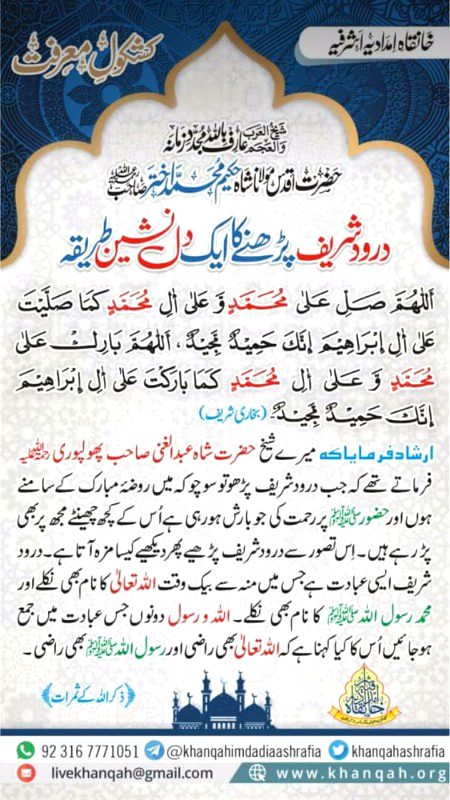 خانقاہ امدادیہ اشرفیہ
کشکولِ معرفت
شیخ العرب والعجم عارف باللہ مجددِ زمانہ
حضرت اقدس مولانا شاہ حکیم محمد اختر صاحب
درود شریف پڑھنے کا ایک دل نشین طریقہ
اَللّٰهُمَّ صَلِّ عَلٰى مُحَمَّدٍ وَّ عَلٰى اٰلِ مُحَمَّدٍ كَمَا صَلَّيْتَ
عَلٰى اٰلِ اِبْرَاهِيْمَ اِنَّكَ حَمِيْدٌ مَّجِيْدٌ ، اَللّٰهُمَّ بَارِكْ عَلٰى
مُحَمَّدٍ وَّ عَلٰى اٰلِ مُحَمَّدٍ كَمَا بَارَكْتَ عَلٰى اٰلِ اِبْرَاهِيْمَ
اِنَّكَ حَمِيْدٌ مَّجِيْدٌ۔ (بخاری شریف)
ارشاد فرمایا کہ میرے شیخ حضرت شاہ عبدالغنی صاحب پھولپوری رحمۃ اللہ علیہ
فرماتے تھے کہ جب درود شریف پڑھو تو سوچو کہ میں روضۂ مبارک کے سامنے
ہوں اور حضور ﷺ پر رحمت کی جو بارش ہو رہی ہے اُس کے کچھ چھینٹے مجھ پر بھی
پڑ رہے ہیں۔ اِس تصور سے درود شریف پڑھیے پھر دیکھیے کیسا مزہ آتا ہے۔ درود
شریف ایسی عبادت ہے جس میں منہ سے بیک وقت اللہ تعالیٰ کا نام بھی نکلے اور
محمد رسول اللہ ﷺ کا نام بھی نکلے۔ اللہ و رسول دونوں جس عبادت میں جمع
ہو جائیں اُس کا کیا کہنا ہے کہ اللہ تعالیٰ بھی راضی اور رسول اللہ ﷺ بھی راضی۔
(ذکر اللہ کے ثمرات)
92 316 7771051 @khanqahimdadiaashrafia khanqahashrafia
livekhanqah@gmail.com www.khanqah.org